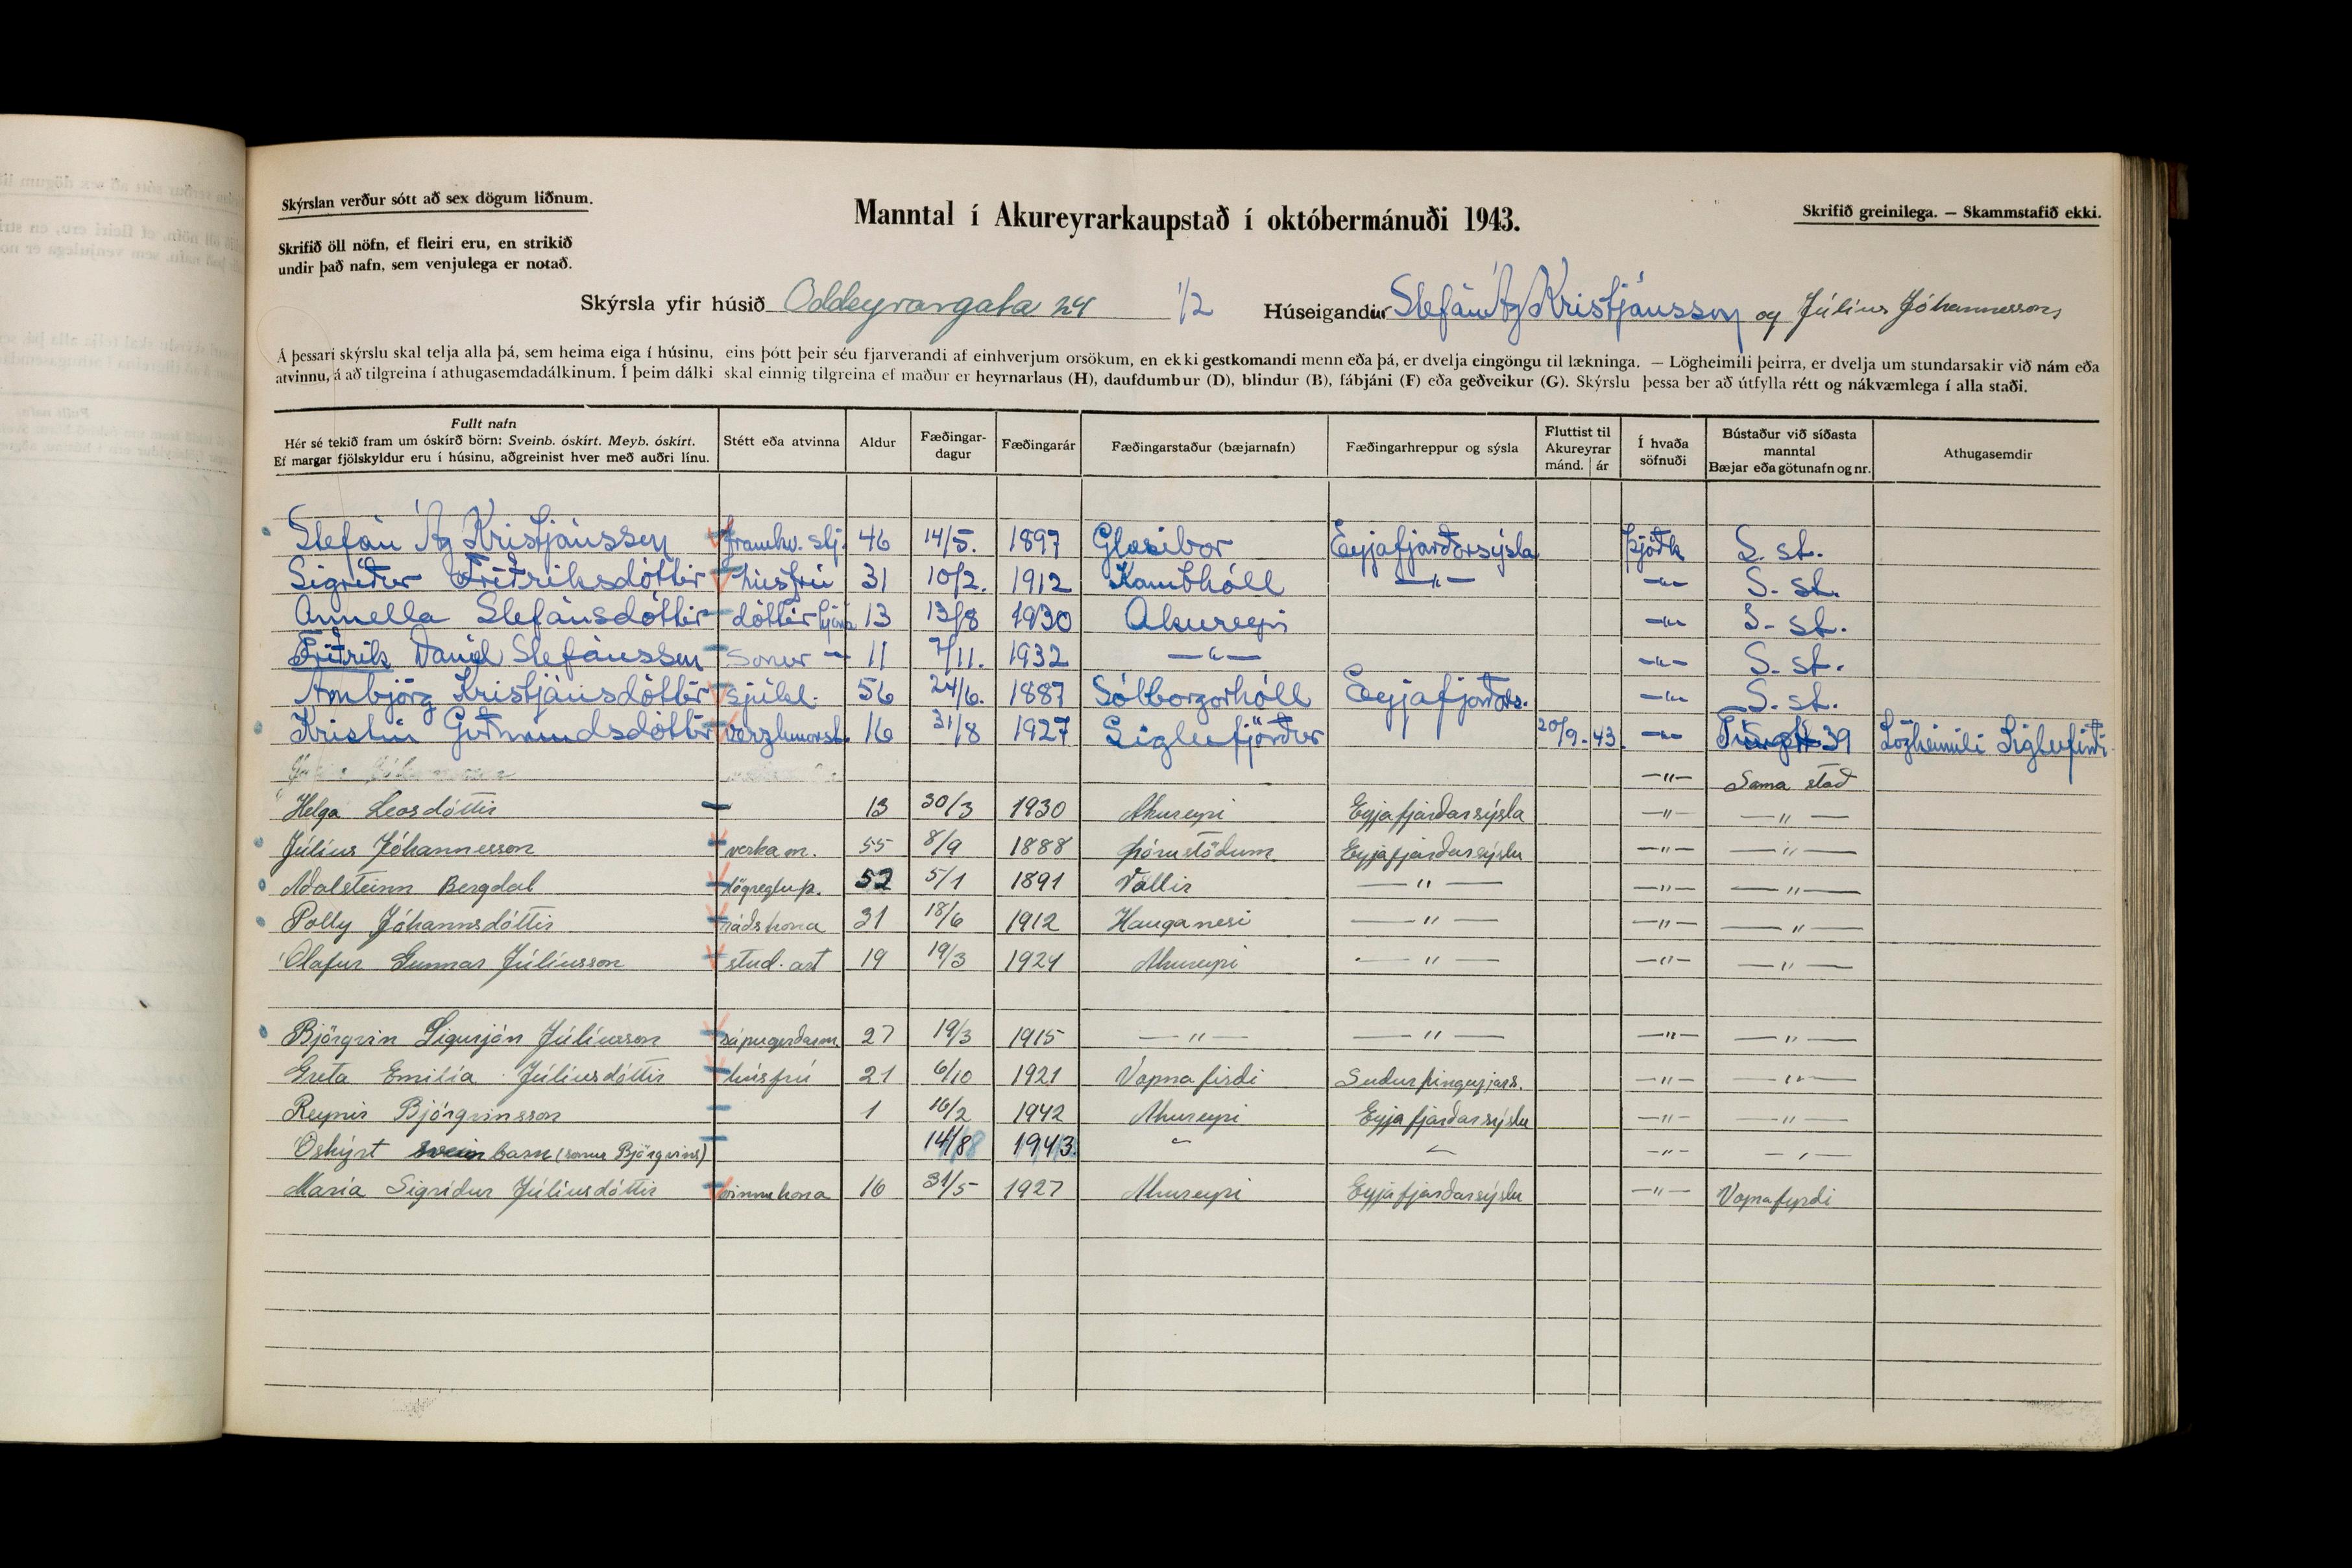 Skýrslan verður sótt að sex dögum liðnum.
Manntal í Akureyrarkaupstað í októbermánuði 1943.
Skrifið greinilega. — Skammstafið ekki.
Skrifið öll nöfn, ef fleiri eru, en strikið
undir það nafn, sem venjulega er notað.
Skýrsla yfir húsið Oddeyrargata 24 1/2 Húseigandur Stefán Ág Kristjánsson og Júlíus Jóhannesson
Á þessari skýrslu skal telja alla þá, sem heima eiga í húsinu, eins þótt þeir séu fjarverandi af einhverjum orsökum, en ekki gestkomandi menn eða þá, er dvelja eingöngu til lækninga. — Lögheimili þeirra, er dvelja um stundarsakir við nám eða
atvinnu, á að tilgreina í athugasemdadálkinum. Í þeim dálki skal einnig tilgreina ef maður er heyrnarlaus (H), daufdumbur (D), blindur (B), fábjáni (F) eða geðveikur (G). Skýrslu þessa ber að útfylla rétt og nákvæmlega í alla staði.
Fullt nafn
Hér sé tekið fram um óskírð börn: Sveinb. óskírt. Meyb. óskírt.
Ef margar fjölskyldur eru í húsinu, aðgreinist hver með auðri línu.
Stétt eða atvinna
Aldur
Fæðingar-
dagur
Fæðingarár
Fæðingarstaður (bæjarnafn)
Fæðingarhreppur og sýsla
Fluttist til
Akureyrar
mánd. ár
Í hvaða
söfnuði
Bústaður við síðasta
manntal
Bæjar eða götunafn og nr.
Athugasemdir
Stefán Ág Kristjánsson framkv. stj. 46 14/5. 1897 Glæsibær Eyjafjarðarsýsla Þjóðk S. st.
Sigríður Friðriksdóttir húsfrú 31 10/2. 1912 Kambhóll —"— —"— S. st.
Annella Stefánsdóttir dóttir hjóna 13 13/8 1930 Akureyri —"— S. st.
Friðrik Daníel Stefánsson sonur —"— 11 7/11. 1932 —"— —"— S. st.
Arnbjörg Kristjánsdóttir sjúkl. 56 24/6. 1887 Sólborgarhóll Eyjafjarðars. —"— S. st.
Kristín Guðmundsdóttir verzlunarst. 16 31/8 1927 Siglufjörður 20/9. 43. —"— 39 Lögheimili Siglufirði
—"— Sama stað
Helga Leosdóttir 13 30/3 1930 Akureyri Eyjafjarðarsýsla —"— —"—
Júlíus Jóhannesson verkam. 55 8/9 1888 Þórustöðum Eyjafjarðarsýslu —"— —"—
Aðalsteinn Bergdal lögregluþ. 52 5/1 1891 Vallir —"— —"— —"—
Polly Jóhannsdóttir ráðskona 31 18/6 1912 Hauganesi —"— —"— —"—
Ólafur Gunnar Júlíusson stud. art 19 19/3 1924 Akureyri —"— —"— —"—
Björgvin Sigurjón Júlíusson sápugerðarm. 27 19/3 1915 —"— —"— —"— —"—
Greta Emilía Júlíusdóttir húsfrú 21 6/10 1921 Vopnafirði Suðurþingeyjars. —"— —"—
Reynir Björgvinsson 1 16/2 1942 Akureyri Eyjafjarðarsýslu —"— —"—
Óskýrt sveinbarn (sonur Björgvins) 14/8 1943. " " —"— —"—
María Sigríður Júlíusdóttir vinnukona 16 31/5 1927 Akureyri Eyjafjarðarsýslu —"— Vopnafyrði